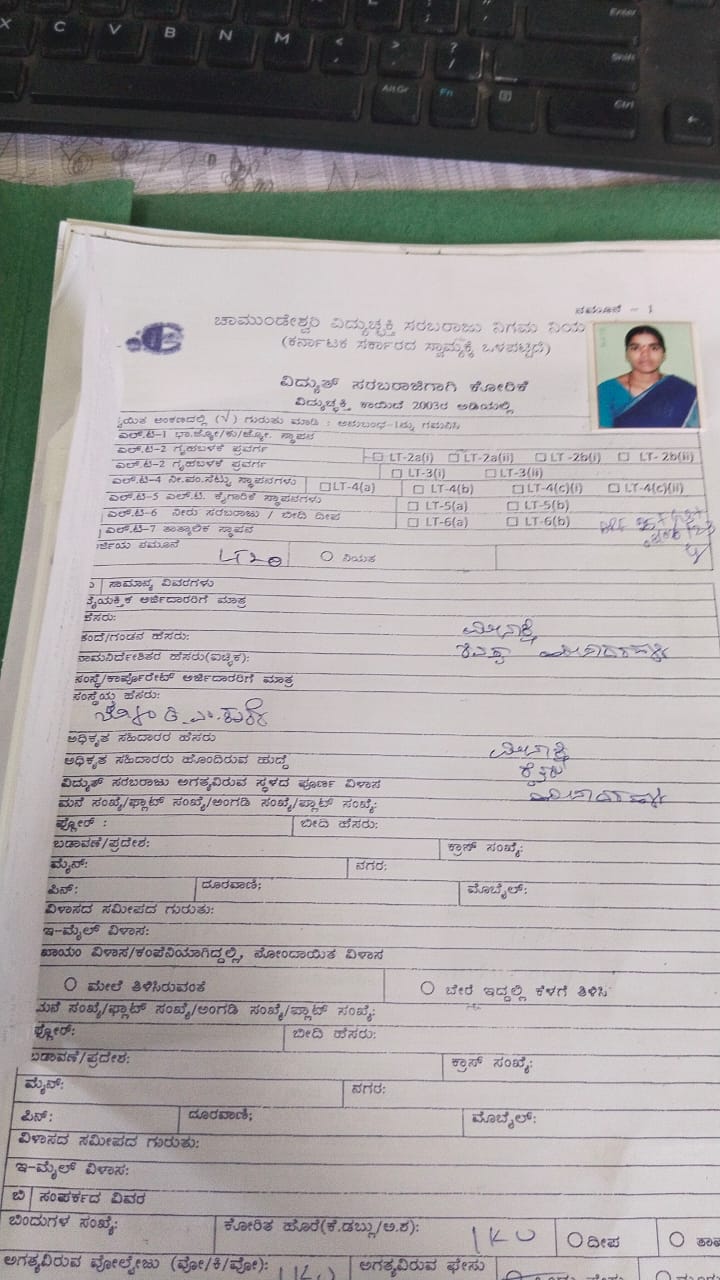 X C V B N M < , > . ? / Enter
Shift
Alt Gr Fn Ctrl
ನಮೂನೆ - 1
ಚಾಮುಂಡೇಶ್ವರಿ ವಿದ್ಯುಚ್ಛಕ್ತಿ ಸರಬರಾಜು ನಿಗಮ ನಿಯ
(ಕರ್ನಾಟಕ ಸರ್ಕಾರದ ಸ್ವಾಮ್ಯಕ್ಕೆ ಒಳಪಟ್ಟಿದೆ)
ವಿದ್ಯುತ್ ಸರಬರಾಜಿಗಾಗಿ ಕೋರಿಕೆ
ವಿದ್ಯುಚ್ಛಕ್ತಿ ಕಾಯಿದೆ 2003ರ ಅಡಿಯಲ್ಲಿ
ಅಂಕಣದಲ್ಲಿ (√) ಗುರುತು ಮಾಡಿ : ಅನುಬಂಧ-1ನ್ನು ಗಮನಿಸಿ
ಎಲ್.ಟಿ-1 ಭಾ.ಜ್ಯೋ/ಕು/ಜ್ಯೋ. ಸ್ಥಾಪನ
ಎಲ್.ಟಿ-2 ಗೃಹಬಳಕೆ ಪ್ರವರ್ಗ LT-2a(i) LT-2a(ii) LT-2b(i) LT-2b(ii)
ಎಲ್.ಟಿ-2 ಗೃಹಬಳಕೆ ಪ್ರವರ್ಗ LT-3(i) LT-3(ii)
ಎಲ್.ಟಿ-4 ನೀ.ಪಂ.ಸೆಟ್ಟು ಸ್ಥಾಪನಗಳು LT-4(a) LT-4(b) LT-4(c)(i) LT-4(c)(ii)
ಎಲ್.ಟಿ-5 ಎಲ್.ಟಿ. ಕೈಗಾರಿಕೆ ಸ್ಥಾಪನಗಳು LT-5(a) LT-5(b)
ಎಲ್.ಟಿ-6 ನೀರು ಸರಬರಾಜು / ಬೀದಿ ದೀಪ LT-6(a) LT-6(b)
ಎಲ್.ಟಿ-7 ತಾತ್ಕಾಲಿಕ ಸ್ಥಾಪನ
ನಮೂನೆ ನಿಯತ
ಸಾಮಾನ್ಯ ವಿವರಗಳು
ವೈಯಕ್ತಿಕ ಅರ್ಜಿದಾರರಿಗೆ ಮಾತ್ರ
ಹೆಸರು: ಮೀನಾಕ್ಷಿ
ತಂದೆ/ಗಂಡನ ಹೆಸರು:
ನಾಮನಿರ್ದೇಶಿತರ ಹೆಸರು(ಐಚ್ಛಿಕ):
ಸಂಸ್ಥೆ/ಕಾರ್ಪೊರೇಟ್ ಅರ್ಜಿದಾರರಿಗೆ ಮಾತ್ರ
ಸಂಸ್ಥೆಯ ಹೆಸರು:
ಅಧಿಕೃತ ಸಹಿದಾರರ ಹೆಸರು ಮೀನಾಕ್ಷಿ
ಅಧಿಕೃತ ಸಹಿದಾರರು ಹೊಂದಿರುವ ಹುದ್ದೆ
ವಿದ್ಯುತ್ ಸರಬರಾಜು ಅಗತ್ಯವಿರುವ ಸ್ಥಳದ ಪೂರ್ಣ ವಿಳಾಸ
ಮನೆ ಸಂಖ್ಯೆ/ಫ್ಲಾಟ್ ಸಂಖ್ಯೆ/ಅಂಗಡಿ ಸಂಖ್ಯೆ/ಪ್ಲಾಟ್ ಸಂಖ್ಯೆ:
ಫ್ಲೋರ್ : ಬೀದಿ ಹೆಸರು:
ಬಡಾವಣೆ/ಪ್ರದೇಶ: ಕ್ರಾಸ್ ಸಂಖ್ಯೆ:
ಮೈನ್: ನಗರ:
ಪಿನ್: ದೂರವಾಣಿ: ಮೊಬೈಲ್:
ವಿಳಾಸದ ಸಮೀಪದ ಗುರುತು:
ಇ-ಮೈಲ್ ವಿಳಾಸ:
ಖಾಯಂ ವಿಳಾಸ/ಕಂಪೆನಿಯಾಗಿದ್ದಲ್ಲಿ, ನೋಂದಾಯಿತ ವಿಳಾಸ
ಮೇಲೆ ತಿಳಿಸಿರುವಂತೆ ಬೇರೆ ಇದ್ದಲ್ಲಿ ಕೆಳಗೆ ತಿಳಿಸಿ
ಮನೆ ಸಂಖ್ಯೆ/ಫ್ಲಾಟ್ ಸಂಖ್ಯೆ/ಅಂಗಡಿ ಸಂಖ್ಯೆ/ಪ್ಲಾಟ್ ಸಂಖ್ಯೆ:
ಫ್ಲೋರ್: ಬೀದಿ ಹೆಸರು:
ಬಡಾವಣೆ/ಪ್ರದೇಶ: ಕ್ರಾಸ್ ಸಂಖ್ಯೆ:
ಮೈನ್: ನಗರ:
ಪಿನ್: ದೂರವಾಣಿ: ಮೊಬೈಲ್:
ವಿಳಾಸದ ಸಮೀಪದ ಗುರುತು:
ಇ-ಮೈಲ್ ವಿಳಾಸ:
ಬಿ ಸಂಪರ್ಕದ ವಿವರ
ಬಿಂದುಗಳ ಸಂಖ್ಯೆ: ಕೋರಿತ ಹೊರೆ(ಕೆ.ಡಬ್ಲು/ಅ.ಶ): ದೀಪ
ಅಗತ್ಯವಿರುವ ವೋಲ್ಟೇಜು (ವೋ/ಕಿ/ವೋ): ಅಗತ್ಯವಿರುವ ಫೇಸು